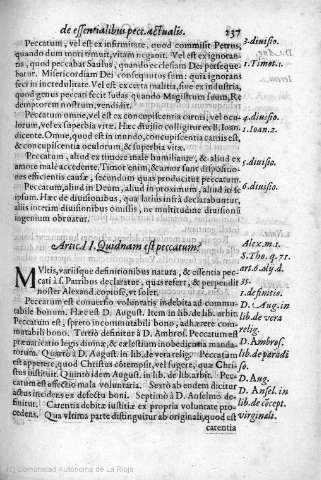 de essentialibus pecc. actualis. 237
Peccatum, vel est ex infirmitate, quod commisit Petrus, 3. divisio.
quando dum mori timuit, vitam negavit. Vel est ex ignorantia,
quod peccabat Saulus, quando ecclesiam Dei persequebatur. 1. Timot. 1.
Misericordiam Dei consequutus sum: quia ignorans
feci in incredulitate. Vel est ex certa malitia, sive ex industria,
quod genus peccati fecit Iudas quando Magistrum suum, Redemptorem
nostrum, vendidit.
Peccatum omne, vel est ex concupiscentia carnis, vel oculorum, 4. divisio.
vel ex superbia vitæ. Hæc divisio colligitur ex B. Ioan. 1. Ioan. 2.
dicente. Omne, quod est in mundo, concupiscentia carnis est,
& concupiscentia oculorum, & superbia vitæ.
Peccatum, aliud ex timore male humiliante, & aliud ex 5. divisio.
amore male accendente. Timor enim, & amor sunt dispositiones
efficientis causæ, secundum quas producitur peccatum.
Peccatum, aliud in Deum, aliud in proximum, aliud in se 6. divisio.
ipsum. Hæc de divisionibus, qua latius infra declarabuntur,
aliis interim divisionibus omissis, ne multitudine divisionū
ingenium obruatur.
Artic. II. Quidnam est peccatum? Alex. m. 1.
S. Tho. q. 71.
MVltis, variisque definitionibus natura, & essentia peccati art. 6. aly. d.
à S. Patribus declaratur, quas refert, & perpendit 35.
noster Alexand. copiose, vt solet. 1. definitio.
Peccatum est conuersio voluntatis indebita ad commutabile D. Aug. in
bonum. Hæc est D. August. Item in lib. de lib. arbit. lib. de vera
Peccatum est, spreto incommutabili bono, adhærere commutabili relig.
bono. Tertio definitur à D. Ambros. Peccatum est D. Ambros.
præuaricatio legis diuinæ, & cælestium inobedientia mandatorum. lib. de paradi
Quarto à D. August. in lib. de vera relig. Peccatum so.
est appetere, quod Christus contempsit, vel fugere, quæ Christus D. Aug.
sustinuit. Quinto idem August. in lib. de lib. arbit. Peccatum
est affectio mala voluntaria. Sexto ab eodem dicitur D. Ansel. in
actus incidens ex defectu boni. Septimò à D. Anselmo definitur. lib. de cōcept.
Carentia debitæ iustitiæ ex propria voluntate procedens. virginali.
Qua vltima parte distinguitur ab originali, quod est
carentia
(c) Comunidad Autónoma de La Rioja